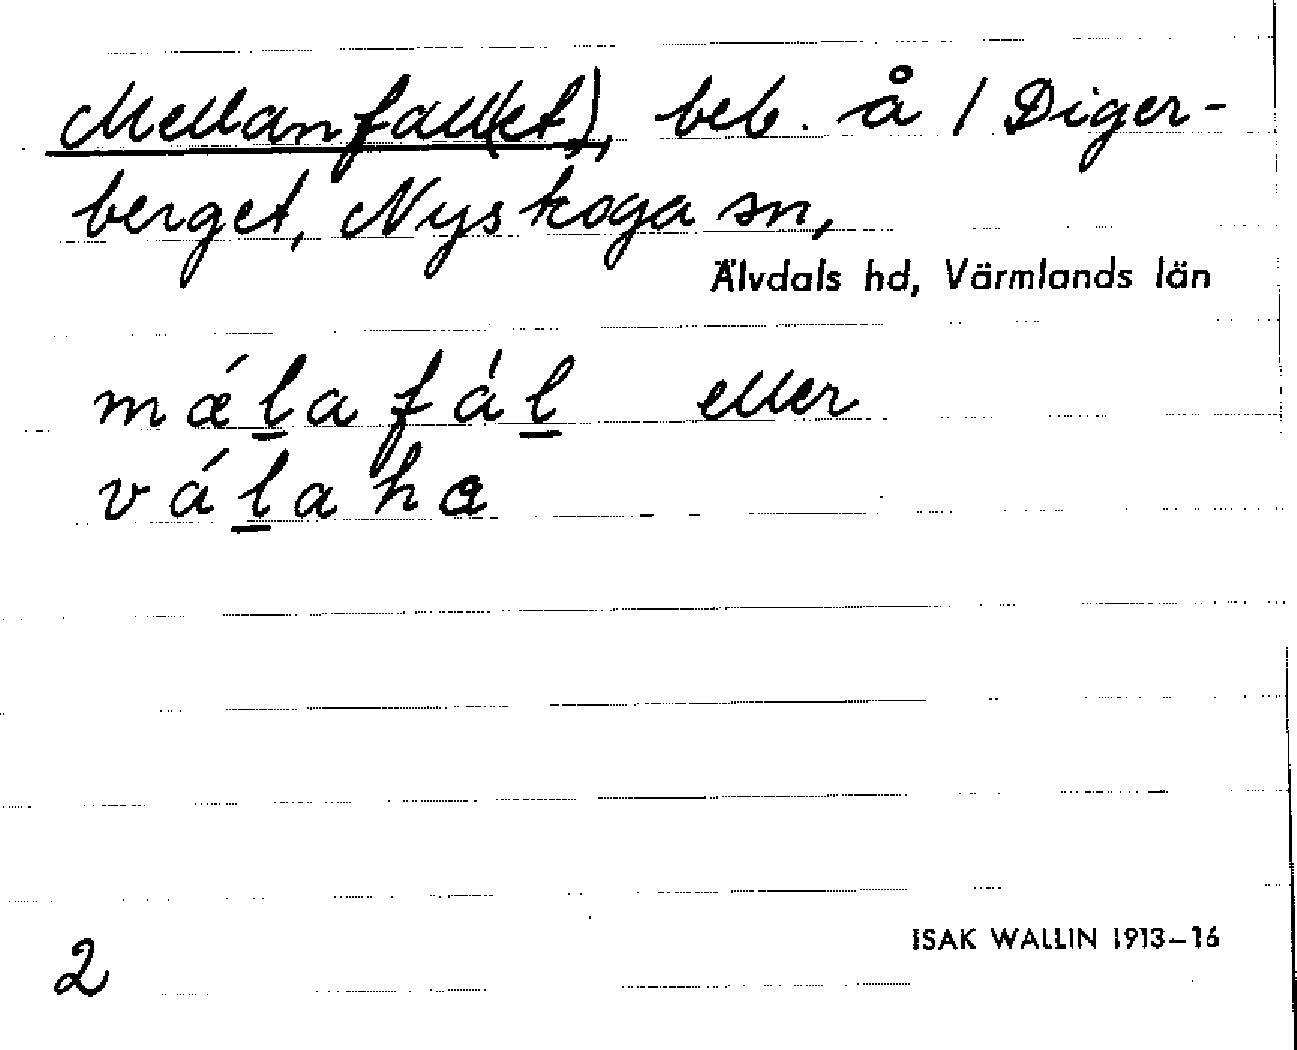 Mellanfall(et), beb. å 1 Diger-
berget, Nyskoga sn,
Älvdals hd, Värmlands län
mǽl̲afál̲ eller
vál̲aha
2
ISAK WALLIN 1913–16